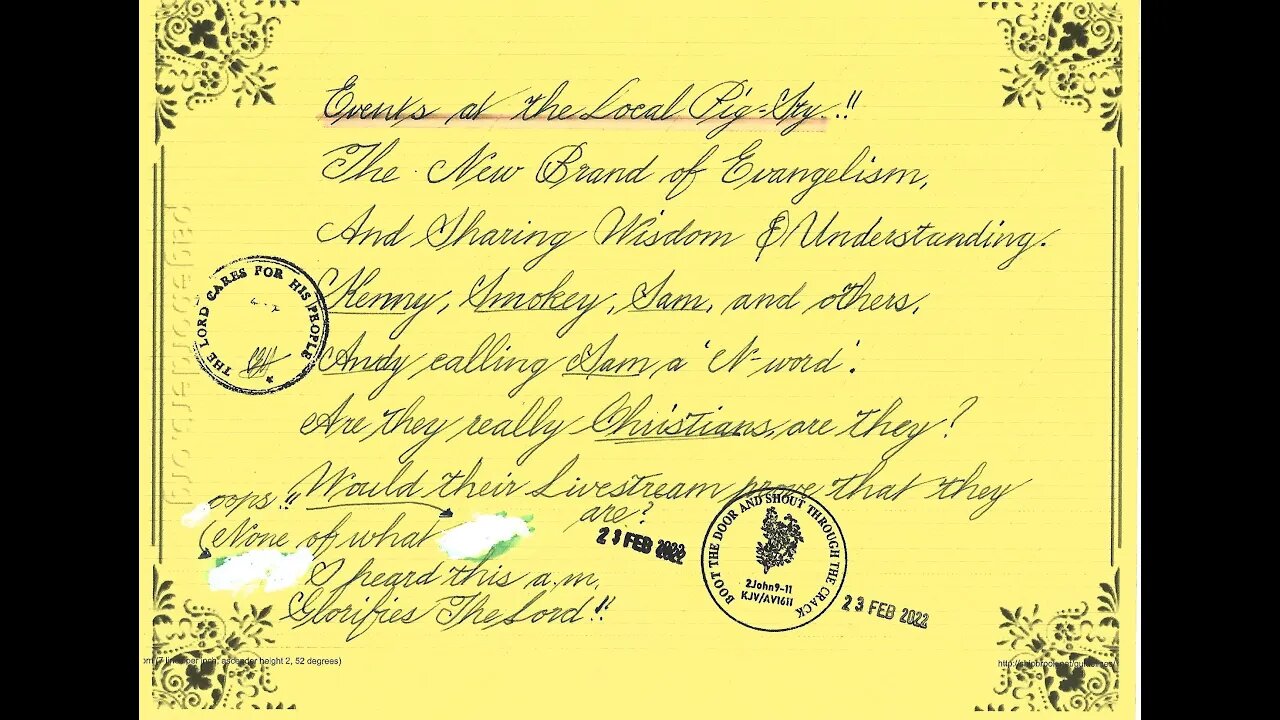 Events at the Local Pig-Sty.!!
The New Brand of Evangelism,
And Sharing Wisdom & Understanding.
Kenny, Smokey, Sam, and others,
Andy calling Sam, a 'N-word'.
Are they really Christians, are they?
Would their Livestream prove that they
are?
oops!!
(None of what
I heard this a.m.
Glorifies The Lord!!
THE LORD CARES FOR HIS PEOPLE
23 FEB 2022
BOOT THE DOOR AND SHOUT THROUGH THE CRACK
2John9-11
KJV/AV1611
23 FEB 2022
(7 lines per inch, ascender height 2, 52 degrees)